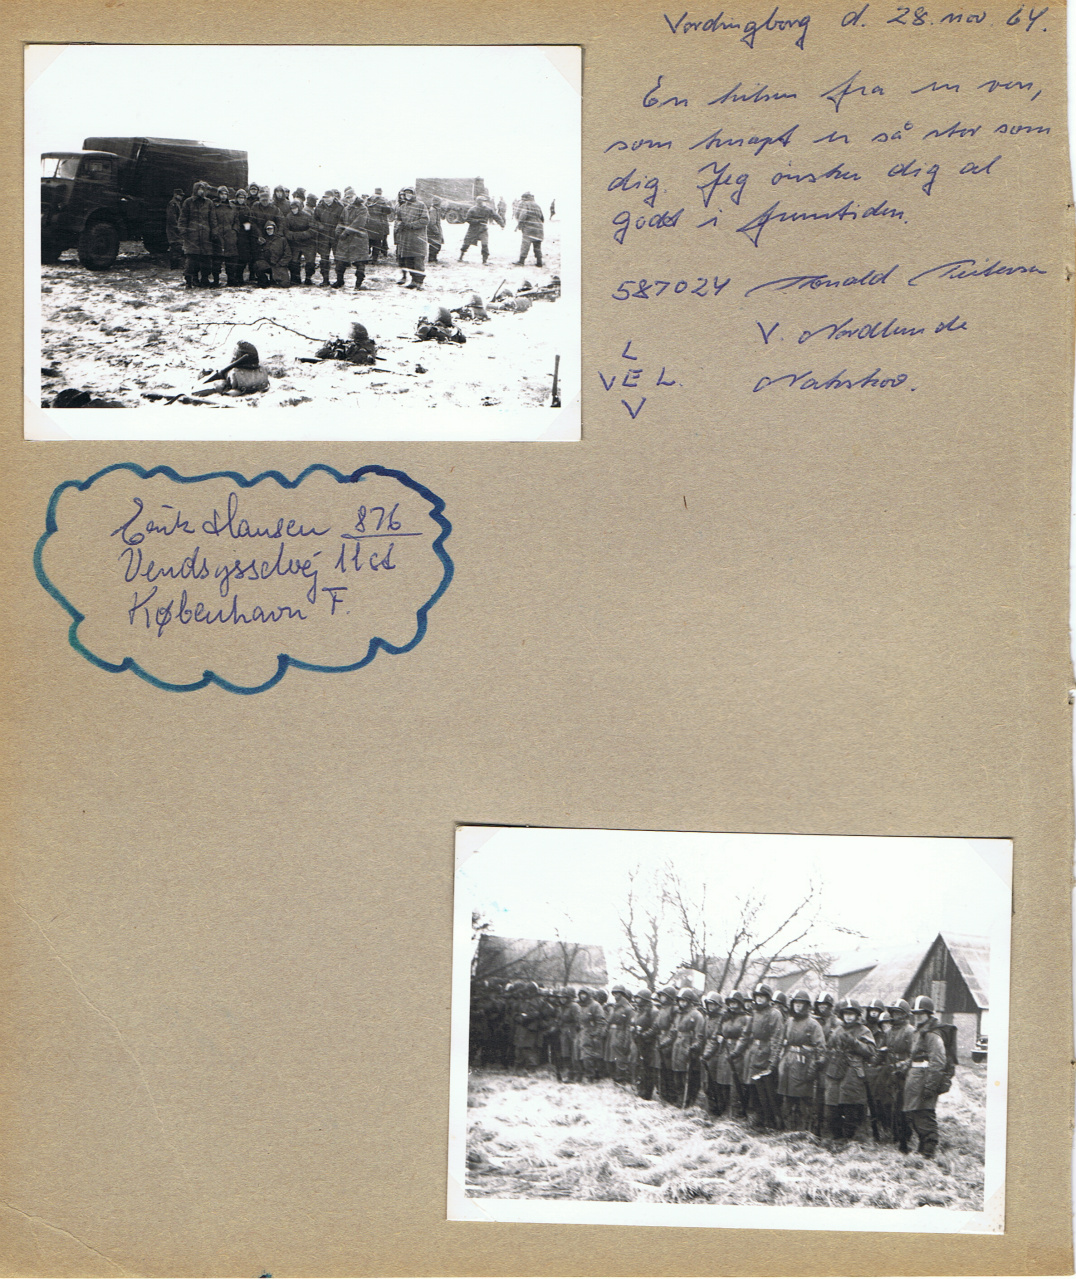 Vordingborg d. 28. nov. 64.
En hilsen fra en ven,
som knapt er så stor som
dig. Jeg ønsker dig al
godt i fremtiden.
587024 Ronald
V. Nordlunde
Nakskov.
L
VEL.
V
Erik Hansen 876
Vendsysselvej 11 ct
København F.